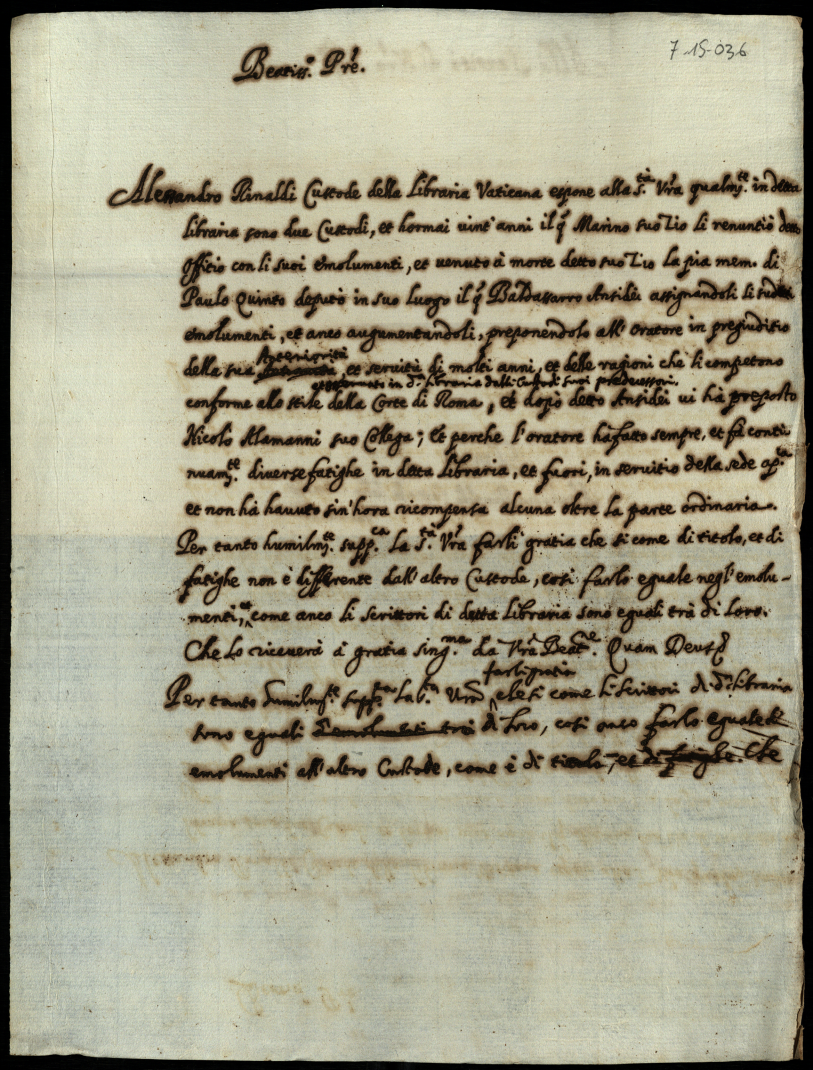 7-15-036
Beatiss.o Pre.
Alessandro Rinaldi Custode della Libraria Vaticana espone alla S.tà Vra qualm.te in detta
libraria sono due Custodi, et hormai vint'anni il q. Marino suo Zio li renuntiò detto
offitio con li suoi emolumenti, et venuto à morte detto suo Zio la pia mem. di
Paulo Quinto deputò in suo luogo il q. Baldassarro Ansidei assignandoli li sudetti
emolumenti, et anco augumentandoli, preponendolo all'Oratore in pregiuditio
Anteriorità
della sua, et servitù di molti anni, et delle ragioni che li competono
et osservato in d.a libraria dalli Custodi suoi predecessori,
conforme allo stile della Corte di Roma, et dopò detto Ansidei vi hà preposto
Nicolò Alamanni suo Collega; Et perche l'oratore hà fatto sempre, et fà conti-
nuam.te diverse fatighe in detta Libraria, et fuori, in servitio della sede ap.ca
et non hà havuto sin'hora ricompensa alcuna oltre la parte ordinaria.
Per tanto humilm.te supp.ca la S.tà Vra farli gratia che si come di titolo, et di
fatighe non è differente dall'altro Custode, così farlo eguale negl'emolu-
menti, et come anco li scrittori di detta Libraria sono eguali trà di loro.
Che lo riceverà à gratia sing.ma da Vra Beat.ne. Quam Deus
farli gratia
Per tanto humilm.te supp.ca la S.tà Vra, che si come li Scrittori di d.a libraria
sono eguali d'emolumenti trà di loro, così anco farlo eguale di
emolumenti all'altro Custode, come è di titolo, et di fatighe. Che